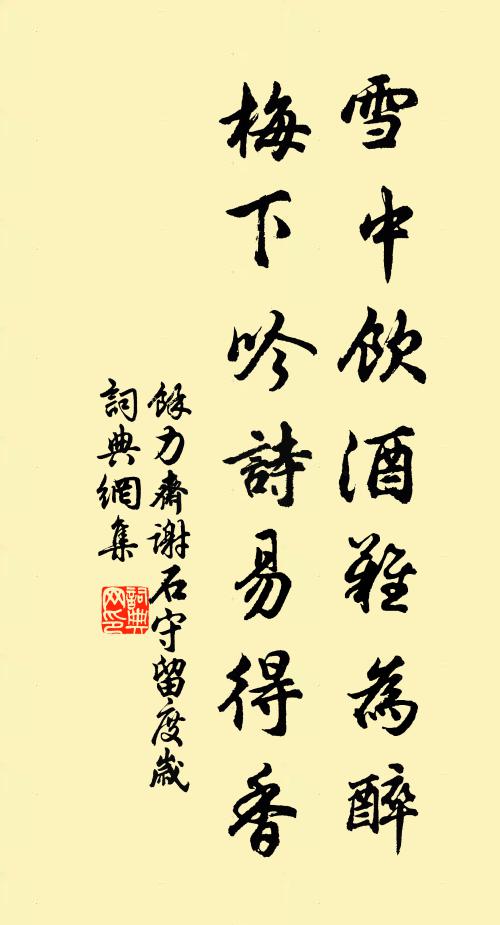 雪中飲酒難為醉
梅下吟詩易得香
餘力齋謝石守留度歲
詞典網集
詞典網印